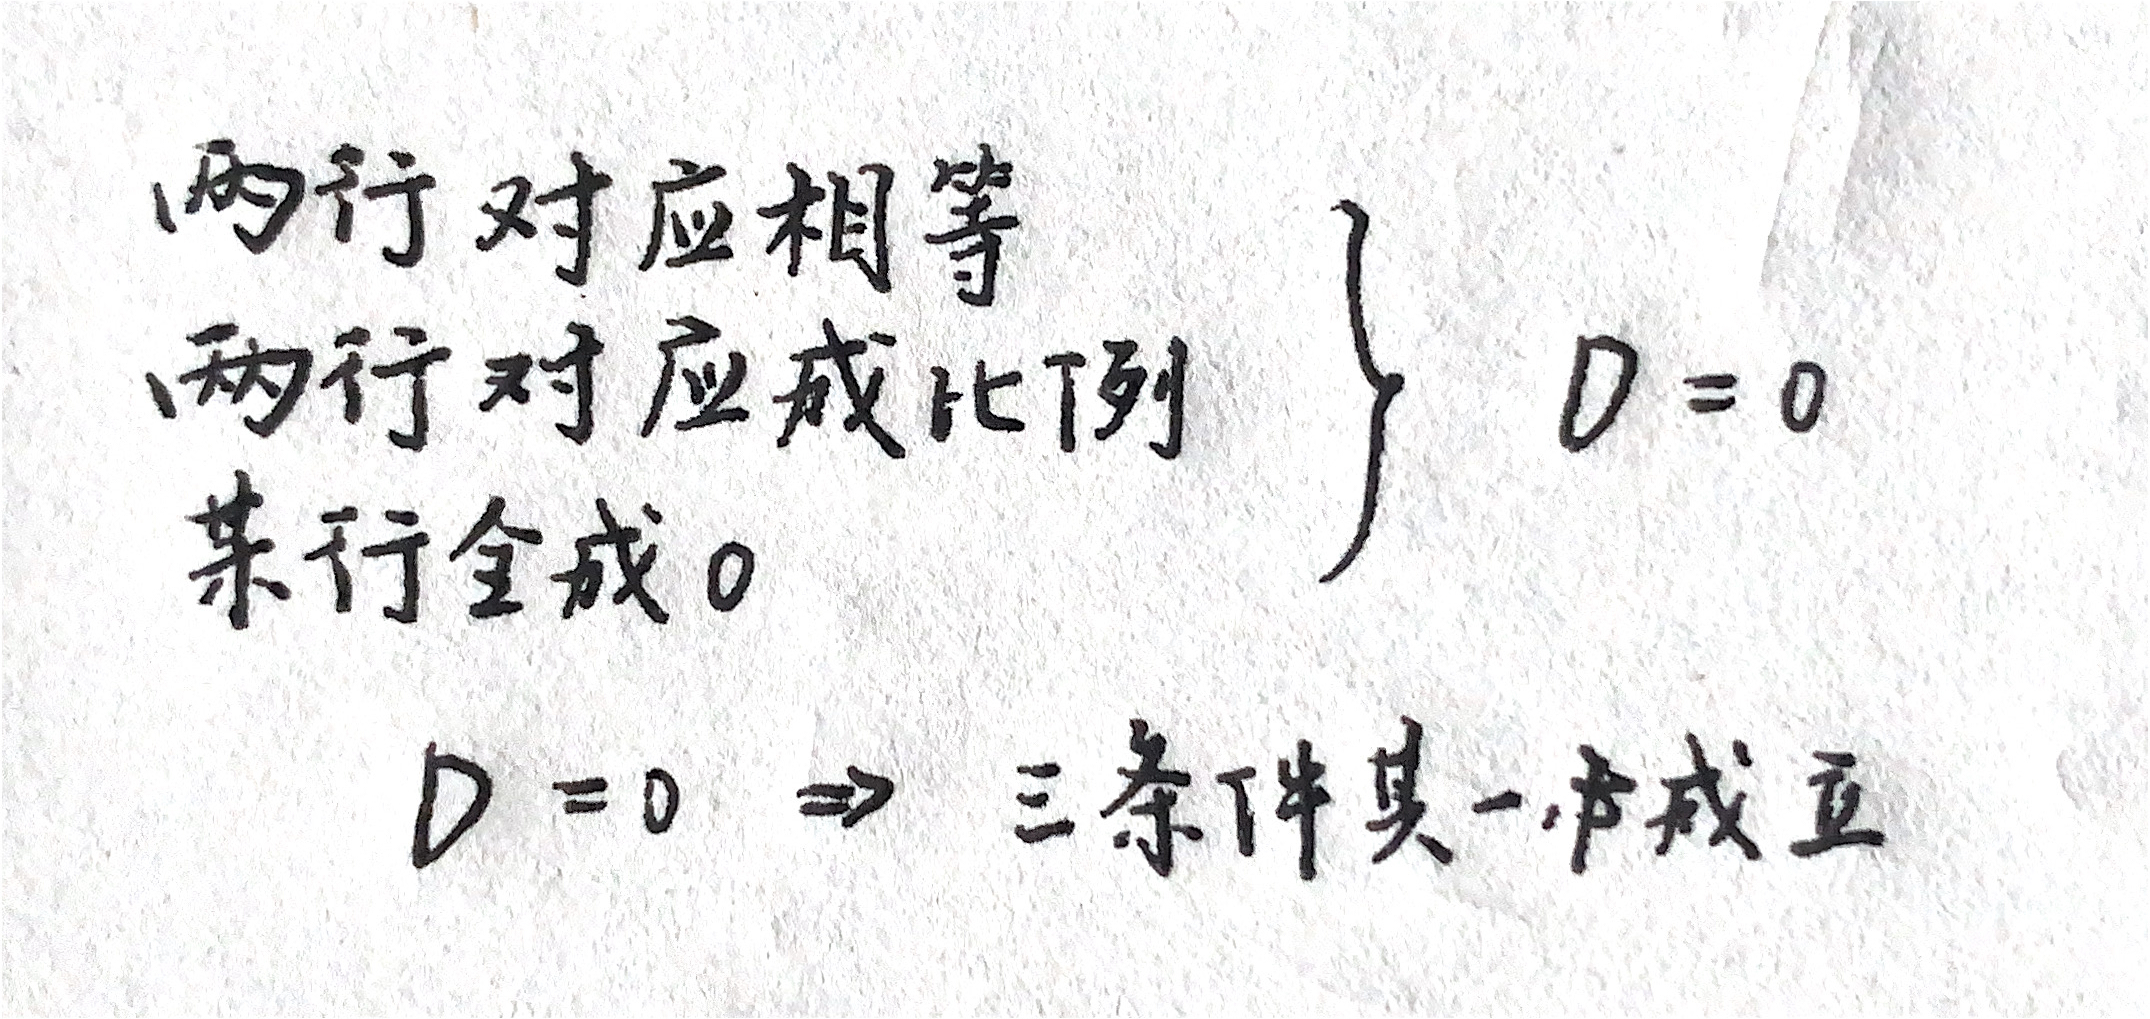 两行对应相等
两行对应成比例
某行全成0
} D=0
D=0 ⇒ 三条件其一成立